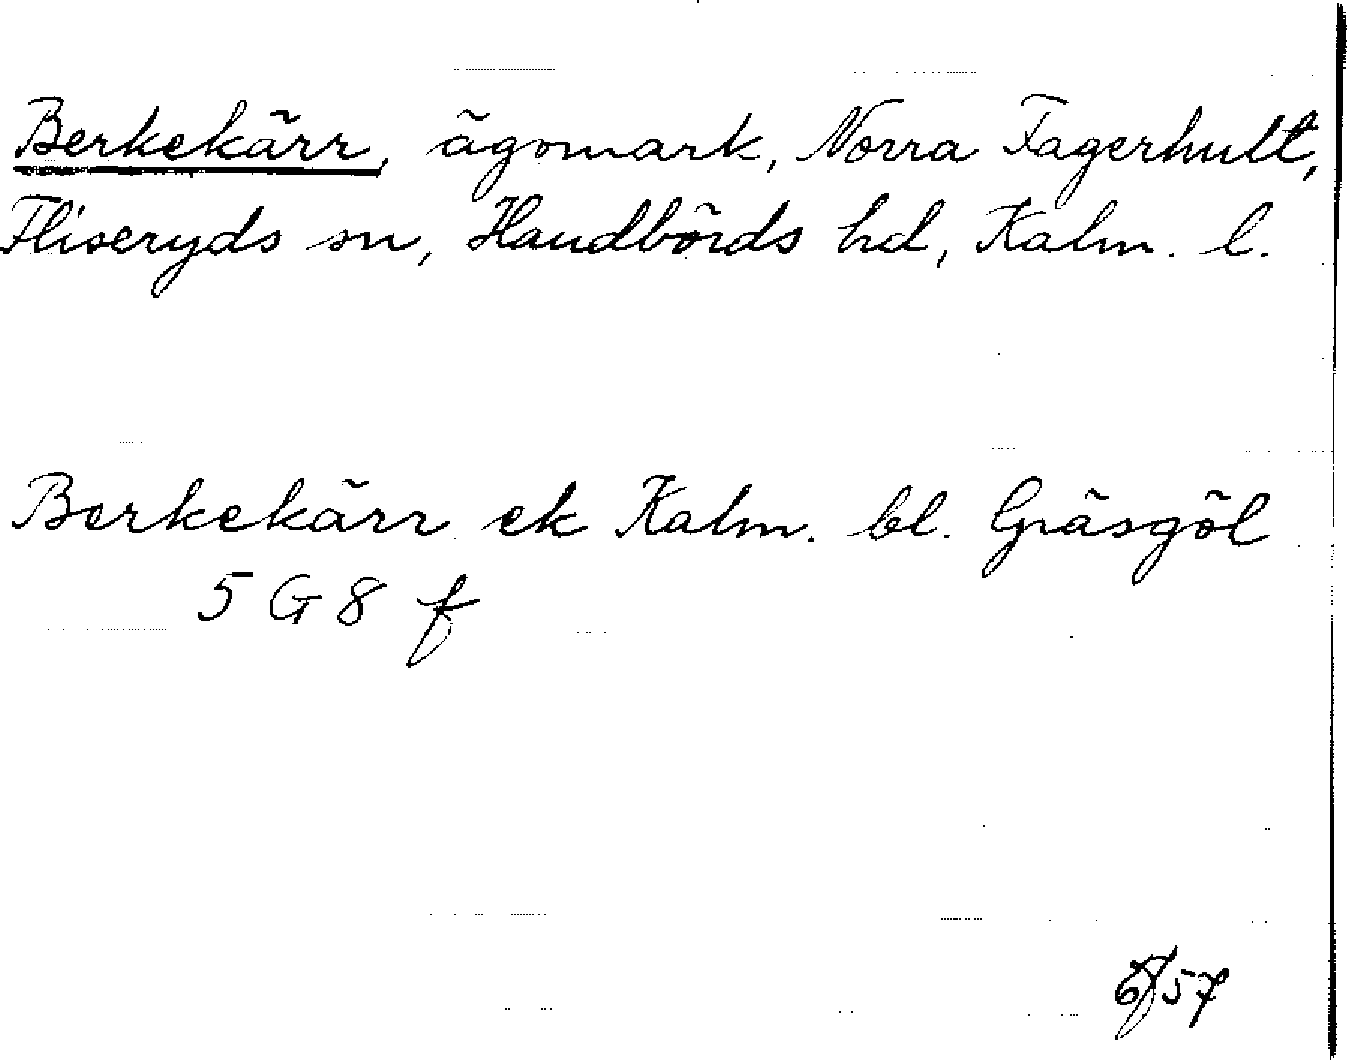 Berkekärr, ägomark, Norra Fagerhult,
Fliseryds sn, Handbörds hd, Kalm. l.
Berkekärr ek Kalm. bl. Gräsgöl
5 G 8 f
57